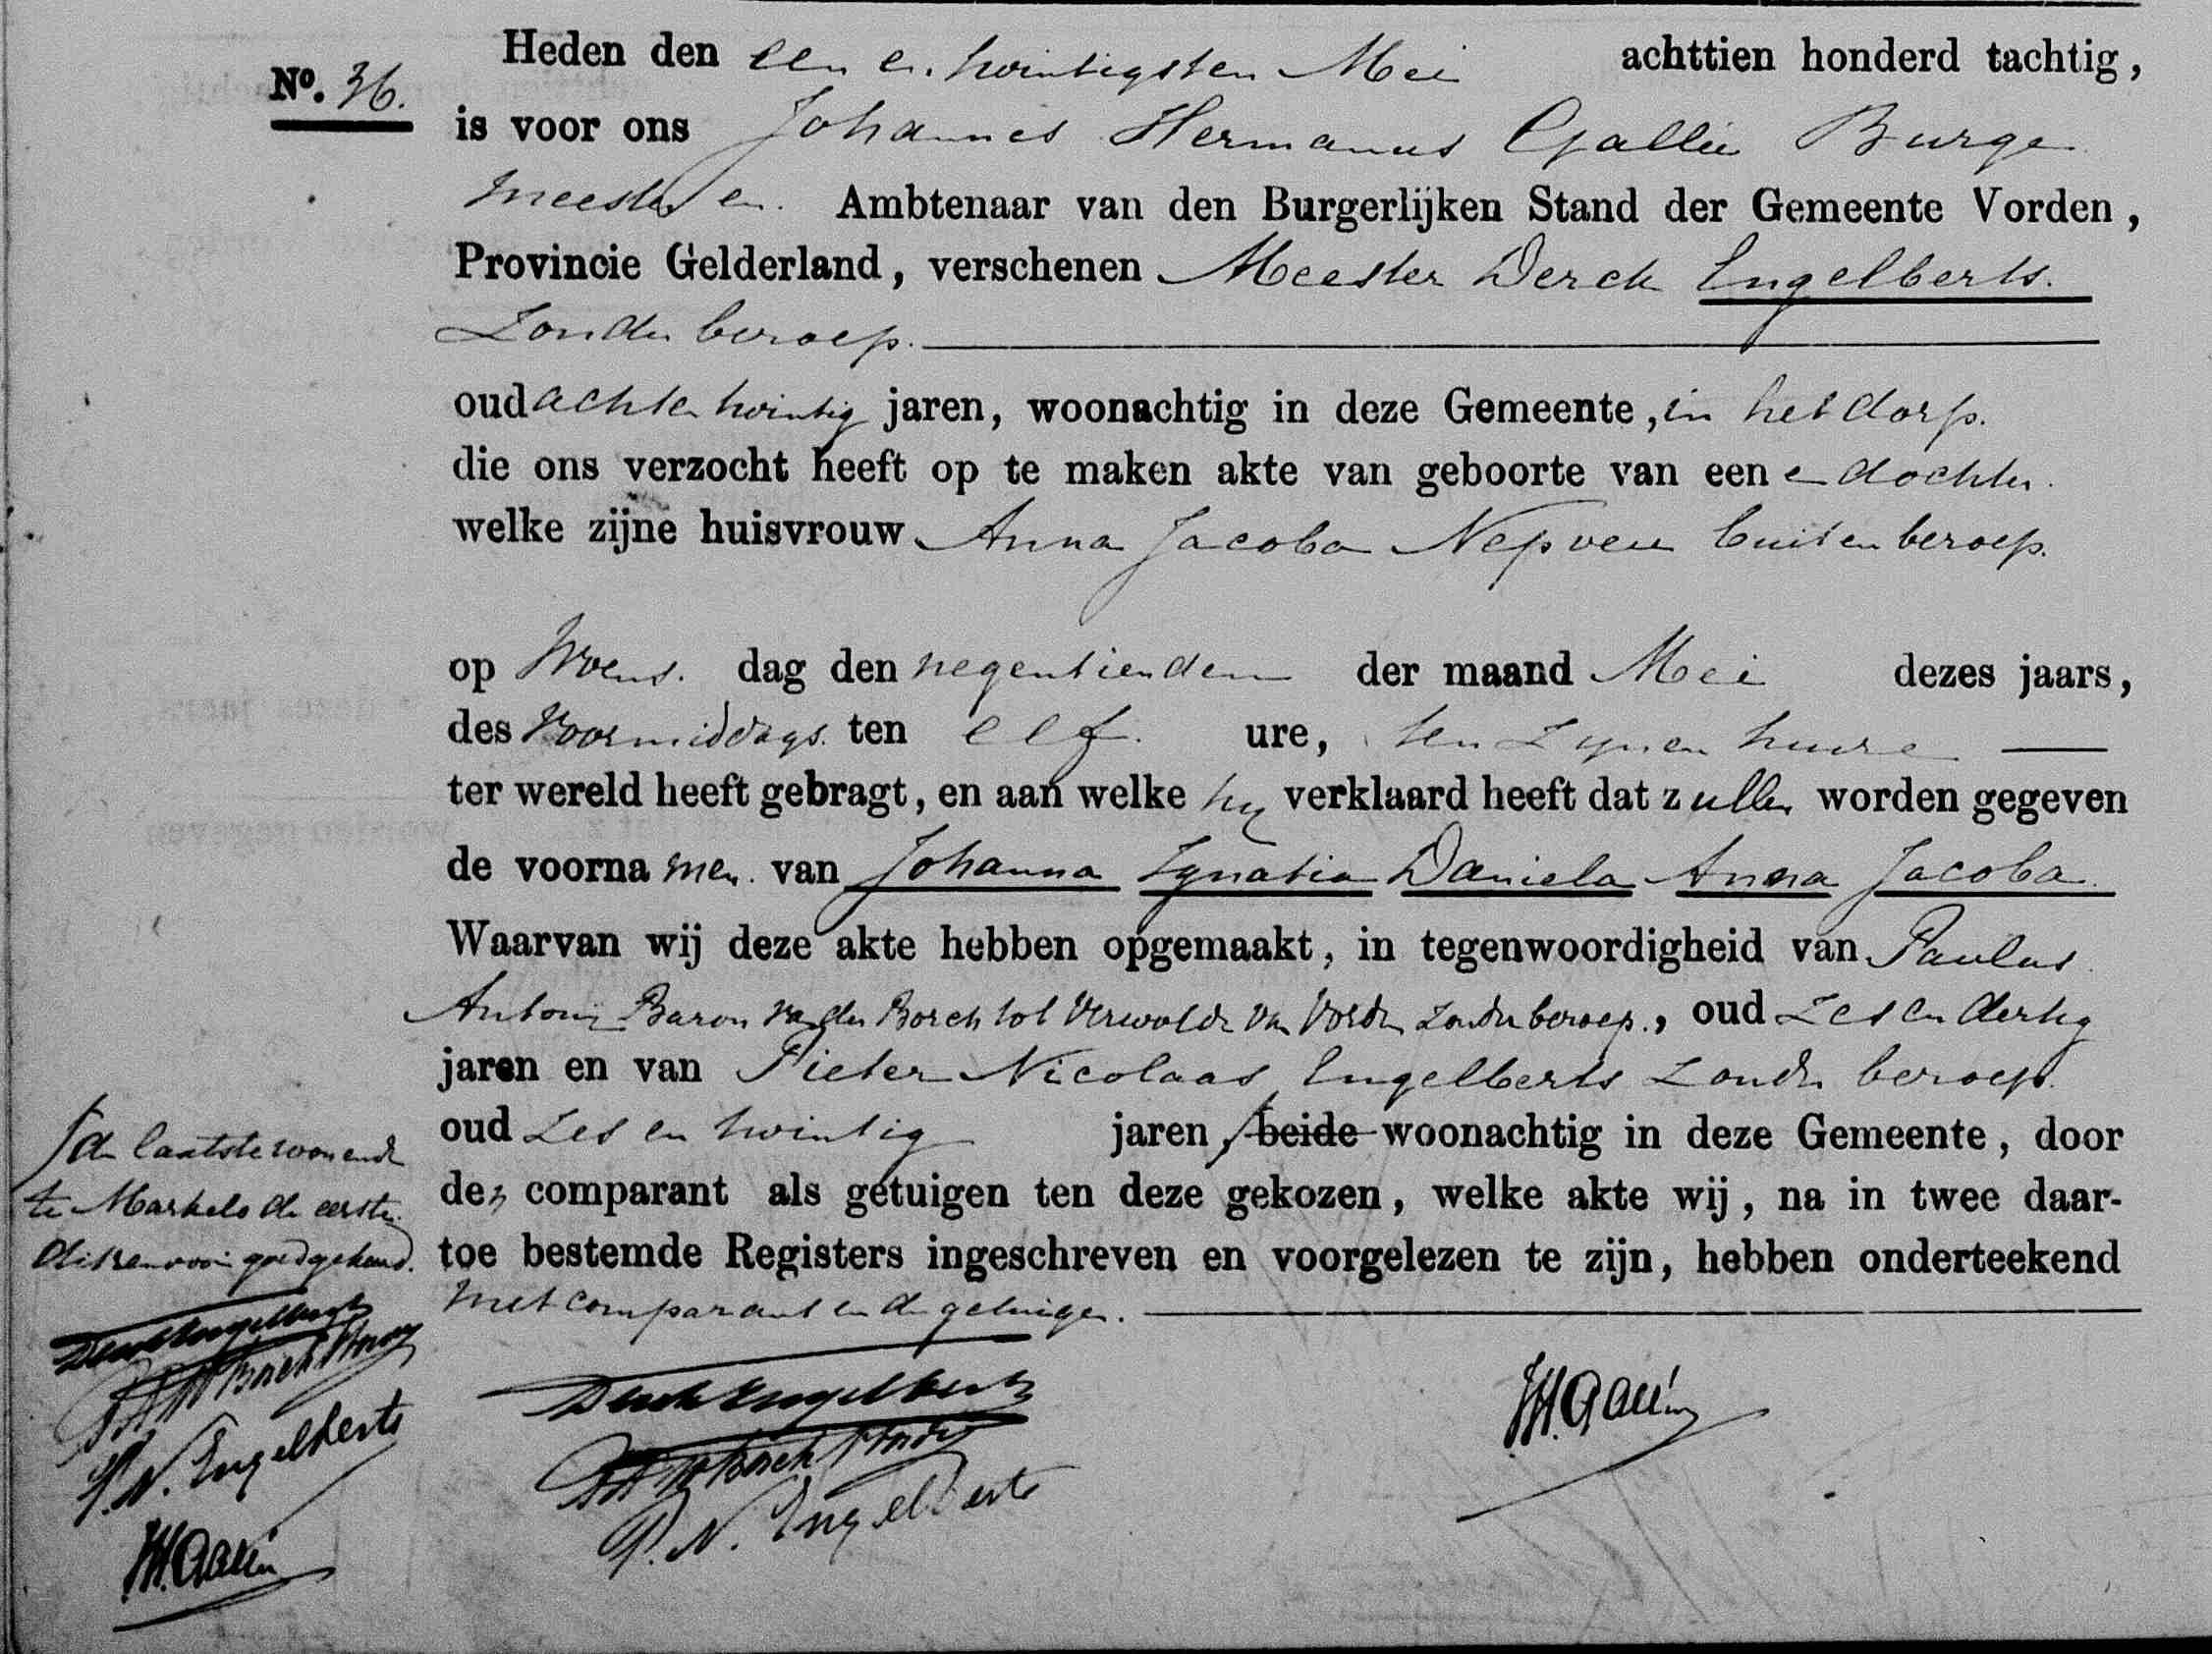 Heden den een en twintigsten Mei achttien honderd tachtig,
No. 36.
is voor ons Johannes Hermanus Gallée Burge
meester en Ambtenaar van den Burgerlijken Stand der Gemeente Vorden,
Provincie Gelderland, verschenen Meester Derck Engelberts.
Zonder beroep.
oud achten twintig jaren, woonachtig in deze Gemeente, in het dorp.
die ons verzocht heeft op te maken akte van geboorte van eene dochter.
welke zijne huisvrouw Anna Jacoba Nepveu buiten beroep.
op Woens. dag den negentienden der maand Mei dezes jaars,
des Voormiddags. ten elf. ure, ten zynen huize
ter wereld heeft gebragt, en aan welke hy verklaard heeft dat zullen worden gegeven
de voornamen. van Johanna Ignatia Daniela Anna Jacoba.
Waarvan wij deze akte hebben opgemaakt, in tegenwoordigheid van Paulus
Antony Baron van der Borch tot Verwolde van Vorden Zonder beroep., oud Zes en dertig
jaren en van Pieter Nicolaas Engelberts Zonder beroep.
oud Zes en twintig jaren, beide woonachtig in deze Gemeente, door
den comparant als getuigen ten deze gekozen, welke akte wij, na in twee daar-
toe bestemde Registers ingeschreven en voorgelezen te zijn, hebben onderteekend
met comparant en de getuigen.
de laatste woonende
te Markelo de eerste
goedgekeurd.
Derck Engelberts
Borch v Vorden
P. N. Engelberts
JH. Gallée
Derck Engelberts
Borch v Vorden
P. N. Engelberts
JH. Gallée